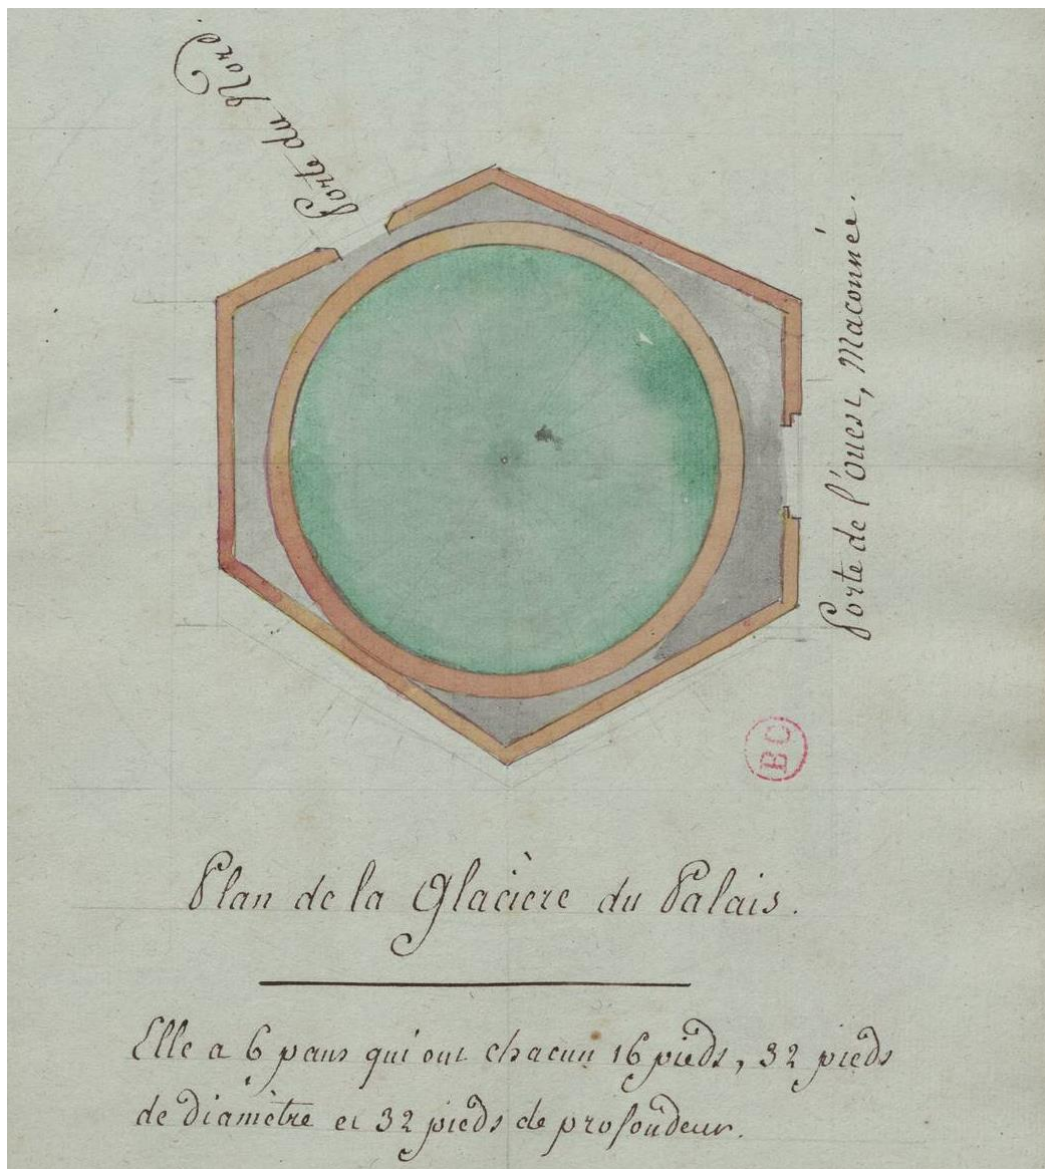 Porte du Nord
Porte de l'ouest, Maconnée.
BC
Plan de la Glacière du Palais.
Elle a 6 pans qui ont chacun 16 pieds, 32 pieds
de diamètre et 32 pieds de profondeur.